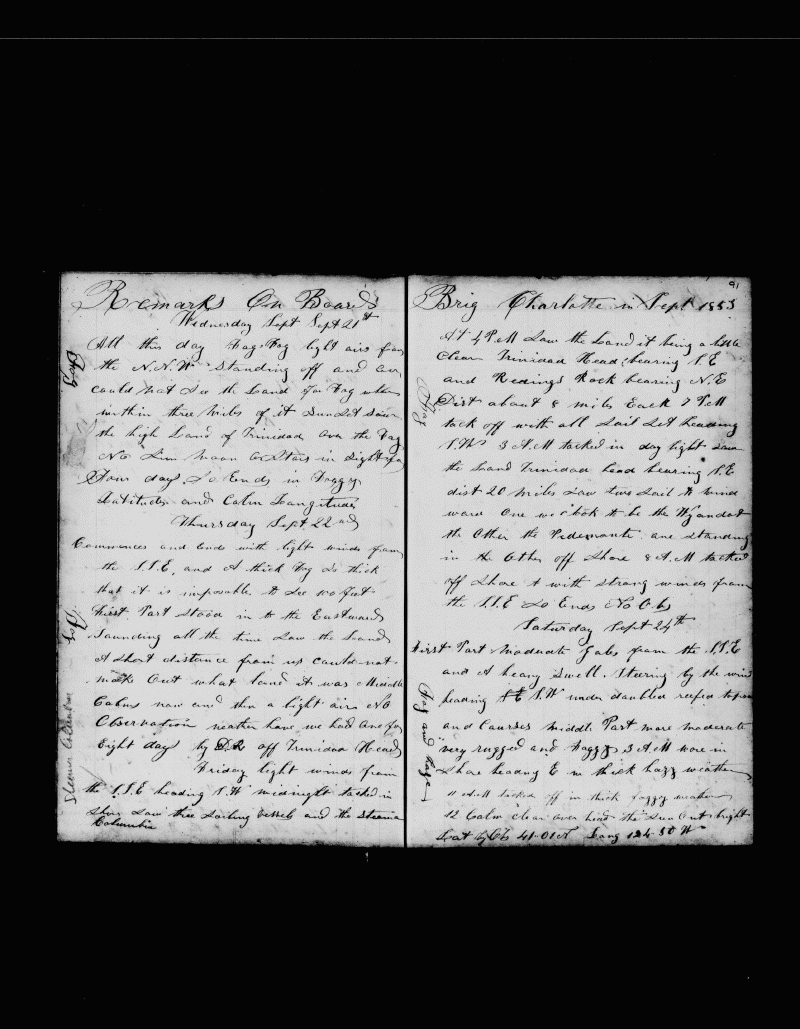 Remarks On Board
Wednesday Sept Sept 21st
All this day Fog Fog light airs from
the N.N.W Standing off and on
could not see the Land for Fog when
within three Miles of it Sun Set Saw
the high Land of Trinidad over the Fog
No Sun Moon or Stars in Sight for
Four days So Ends in Foggy
Latitudes and Calm Longitudes
Fog
Thursday Sept 22nd
Commences and Ends with light winds from
the S.S.E. and A thick Fog So thick
that it is impossible to See 100 feet
First Part Stood in to the Eastward
Sounding all the time Saw the Land
A Short distance from us could not
make Out what land it was Middle
Calms now and then a light airs No
Observation neather have we had One for
Eight days by D.R off Trinidad Head
Fog
Friday light winds from
the S.S.E heading S.W midnight tacked in
Shore Saw three Sailing vessels and the Steamer
Columbia
Steamer Columbia
91
Brig Charlotte in Sept 1853
At 4 P.M Saw the Land it being a little
Clear Trinidad Head bearing S.E
and Redings Rock bearing N.E
Dist about 8 miles Each 7 P.M
tack off with all Sail Set heading
S.W 3 A.M tacked in day light Saw
the Land Trinidad head bearing S.E
dist 20 Miles Saw two Sail to wind
ward One we took to be the Wyandott
the Other the Pedemonte one standing
in the Other off Shore 8 A.M tacked
off Shore with strong winds from
the S.S.E So Ends No Obs
Fog
Saturday Sept 24th
First Part Moderate Gales from the S.S.E
and A heavy Swell. Steering by the wind
heading S.W under doubled reefed topsa
and Courses middle Part more moderate
very rugged and Foggy 3 A.M wore in
Shore heading E in thick hazy weather
11 A.M tacked off in thick foggy weather
12 Calm clear over head the Sun Out bright
Lat by Obs 41-01 N Long 124-50 W
Fog and Haze